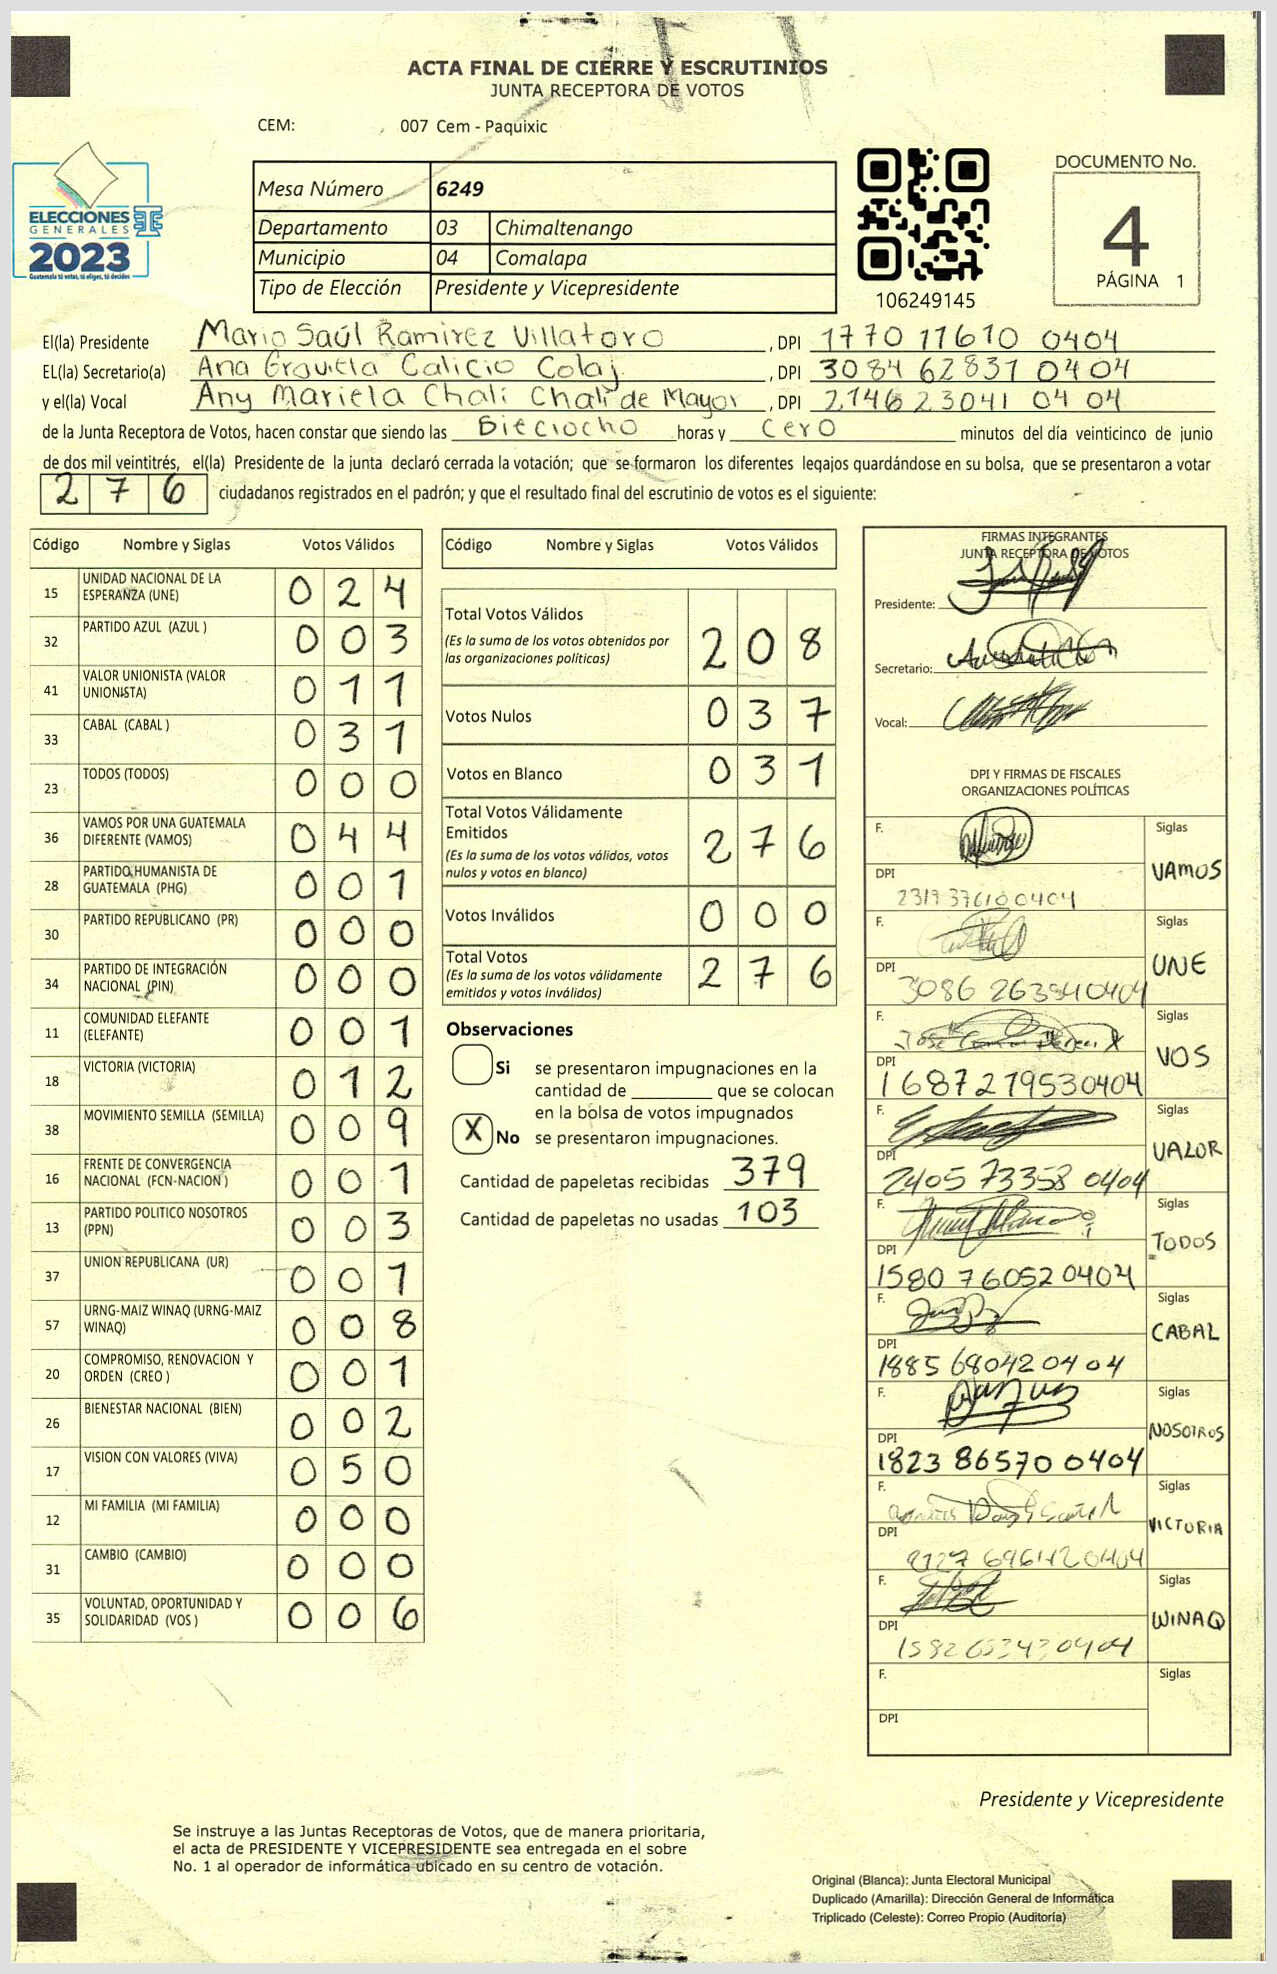 ACTA FINAL DE CIERRE Y ESCRUTINIOS
JUNTA RECEPTORA DE VOTOS
CEM: 007 Cem - Paquixic
ELECCIONES
GENERALES
2023
Guatemala tú votas, tú eliges, tú decides
Mesa Número 6249
Departamento 03 Chimaltenango
Municipio 04 Comalapa
Tipo de Elección Presidente y Vicepresidente
106249145
DOCUMENTO No.
4
PÁGINA 1
El(la) Presidente Mario Saúl Ramirez Villatoro , DPI 1770 11610 0404
EL(la) Secretario(a) Ana Calicio Colaj , DPI 3084 62831 0404
y el(la) Vocal Any Mariela Chalí Chalí de Mayor , DPI 2146 23041 0404
de la Junta Receptora de Votos, hacen constar que siendo las Dieciocho horas y cero minutos del día veinticinco de junio
de dos mil veintitrés, el(la) Presidente de la junta declaró cerrada la votación; que se formaron los diferentes legajos guardándose en su bolsa, que se presentaron a votar
276 ciudadanos registrados en el padrón; y que el resultado final del escrutinio de votos es el siguiente:
Código Nombre y Siglas Votos Válidos
15 UNIDAD NACIONAL DE LA ESPERANZA (UNE) 024
32 PARTIDO AZUL (AZUL ) 003
41 VALOR UNIONISTA (VALOR UNIONISTA) 011
33 CABAL (CABAL ) 031
23 TODOS (TODOS) 000
36 VAMOS POR UNA GUATEMALA DIFERENTE (VAMOS) 044
28 PARTIDO HUMANISTA DE GUATEMALA (PHG) 001
30 PARTIDO REPUBLICANO (PR) 000
34 PARTIDO DE INTEGRACIÓN NACIONAL (PIN) 000
11 COMUNIDAD ELEFANTE (ELEFANTE) 001
18 VICTORIA (VICTORIA) 012
38 MOVIMIENTO SEMILLA (SEMILLA) 009
16 FRENTE DE CONVERGENCIA NACIONAL (FCN-NACION ) 001
13 PARTIDO POLITICO NOSOTROS (PPN) 003
37 UNION REPUBLICANA (UR) 001
57 URNG-MAIZ WINAQ (URNG-MAIZ WINAQ) 008
20 COMPROMISO, RENOVACION Y ORDEN (CREO ) 001
26 BIENESTAR NACIONAL (BIEN) 002
17 VISION CON VALORES (VIVA) 050
12 MI FAMILIA (MI FAMILIA) 000
31 CAMBIO (CAMBIO) 000
35 VOLUNTAD, OPORTUNIDAD Y SOLIDARIDAD (VOS ) 006
Código Nombre y Siglas Votos Válidos
Total Votos Válidos 208
(Es la suma de los votos obtenidos por
las organizaciones políticas)
Votos Nulos 037
Votos en Blanco 031
Total Votos Válidamente
Emitidos 276
(Es la suma de los votos válidos, votos
nulos y votos en blanco)
Votos Inválidos 000
Total Votos 276
(Es la suma de los votos válidamente
emitidos y votos inválidos)
Observaciones
Si se presentaron impugnaciones en la
cantidad de ________ que se colocan
en la bolsa de votos impugnados
X No se presentaron impugnaciones.
Cantidad de papeletas recibidas 379
Cantidad de papeletas no usadas 103
FIRMAS INTEGRANTES
JUNTA RECEPTORA DE VOTOS
Presidente:
Secretario:
Vocal:
DPI Y FIRMAS DE FISCALES
ORGANIZACIONES POLÍTICAS
F. Siglas
VAMOS
DPI
F. Siglas
UNE
DPI 3086 263540404
F. Siglas
VOS
DPI 1687279530404
F. Siglas
VALOR
DPI 2405 73358 0404
F. Siglas
TODOS
DPI 1580 76052 0404
F. Siglas
CABAL
DPI 1885 68042 0404
F. Siglas
NOSOTROS
DPI 1823 86570 0404
F. Siglas
VICTORIA
DPI
F. Siglas
WINAQ
DPI
F. Siglas
DPI
Presidente y Vicepresidente
Se instruye a las Juntas Receptoras de Votos, que de manera prioritaria,
el acta de PRESIDENTE Y VICEPRESIDENTE sea entregada en el sobre
No. 1 al operador de informática ubicado en su centro de votación.
Original (Blanca): Junta Electoral Municipal
Duplicado (Amarilla): Dirección General de Informática
Triplicado (Celeste): Correo Propio (Auditoría)